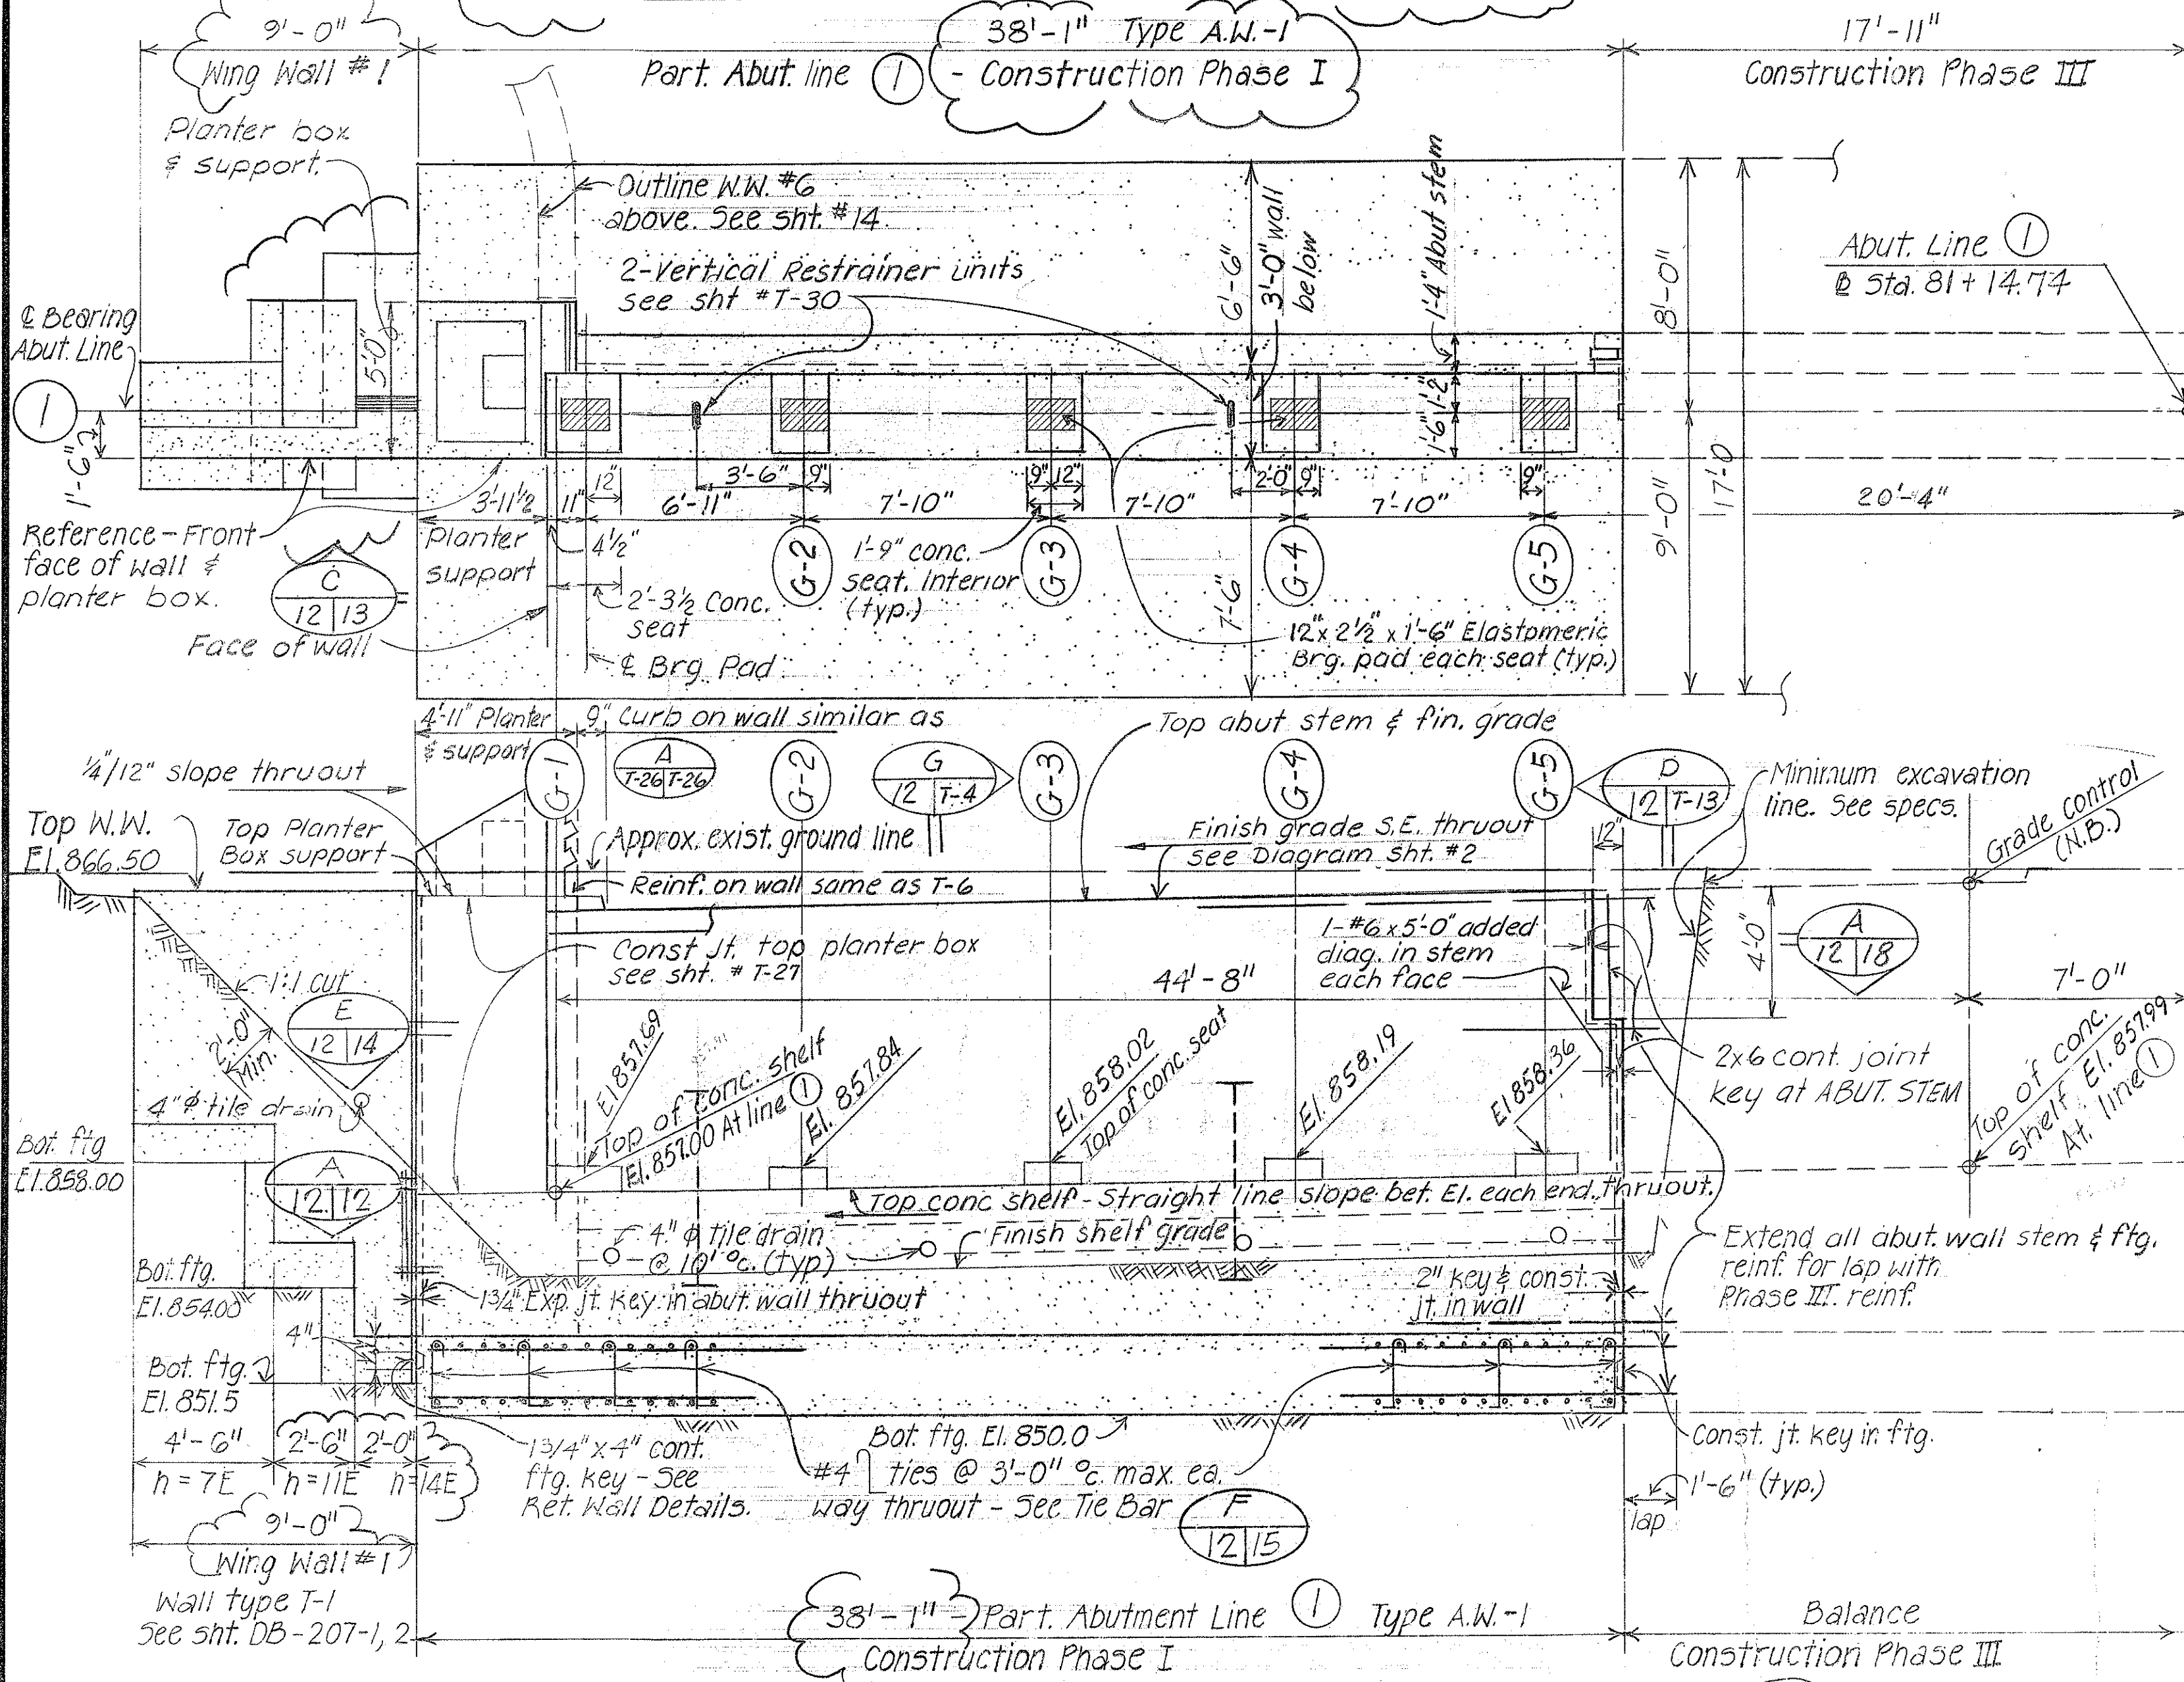 9'-0"
Wing Wall #1
38'-1" Type A.W.-1
Part. Abut. line 1 - Construction Phase I
17'-11"
Construction Phase III
Planter box
& support.
Outline W.W. #6
above. See sht. #14
2-Vertical Restrainer units
see sht #T-30
6'-6"
3'-0" wall
below
1'-4" Abut stem
1'-2"
1'-6"
8'-0"
17'-0
9'-0"
Abut. Line 1
℄ Sta. 81+14.74
℄ Bearing
Abut. Line
1
5'-0"
1'-6"
Reference-Front
face of wall &
planter box.
C
12 | 13
Face of wall
3'-11½
Planter
support
11"
12"
4½"
6'-11"
3'-6"
9"
7'-10"
9" 12"
7'-10"
2'-0" 9"
7'-10"
9"
20'-4"
G-2
G-3
G-4
G-5
2'-3½ Conc.
seat
℄ Brg. Pad
1'-9" conc.
seat. Interior
(typ.)
7'-6"
12"x 2½" x 1'-6" Elastomeric
Brg. pad each seat (typ.)
4'-11" Planter
& support
9" Curb on wall similar as
A
T-26 | T-26
Top abut stem & fin. grade
¼/12" slope thruout
G-1
G-2
G
12 | T-4
G-3
G-4
G-5
D
12 | T-13
Minimum excavation
line. See specs.
Grade control
(N.B.)
Top W.W.
El. 866.50
Top Planter
Box support
Approx. exist. ground line
Reinf. on wall same as T-6
Finish grade S.E. thruout
see Diagram Sht. #2
12"
Const Jt. top planter box
see sht. # T-27
1-#6 x 5'-0" added
diag. in stem
each face
4'-0"
A
12 | 18
1:1 cut
2'-0"
Min.
E
12 | 14
44'-8"
7'-0"
4"ø tile drain
El 857.69
Top of conc. shelf
El. 857.00 At line 1
El. 857.84
El. 858.02
Top of conc. seat
El. 858.19
El 858.36
2x6 cont. joint
key at ABUT. STEM
Top of conc.
shelf El. 857.99
At. line 1
Bot. ftg
El. 858.00
A
12 | 12
Top conc shelf - Straight line slope bet. El. each end thruout.
4" ø tile drain
@ 10' oc. (typ)
Finish shelf grade
Extend all abut. wall stem & ftg.
reinf. for lap with
Phase III. reinf.
Bot. ftg.
El. 854.00
1¾" Exp. jt. key in abut. wall thruout
2" key & const.
jt. in wall
4"
Bot. ftg.
El. 851.5
4'-6"
2'-6"
2'-0"
h=7E
h=11E
h=14E
1 3/4" x 4" cont.
ftg. key - See
Ret. Wall Details.
Bot. ftg. El. 850.0
#4 ties @ 3'-0" oc. max. ea.
way thruout - See Tie Bar
F
12 | 15
Const. jt. key in ftg.
1'-6" (typ.)
lap
9'-0"
Wing Wall #1
Wall type T-1
See sht. DB-207-1, 2
38'-1" Part. Abutment Line 1 Type A.W.-1
Construction Phase I
Balance
Construction Phase III